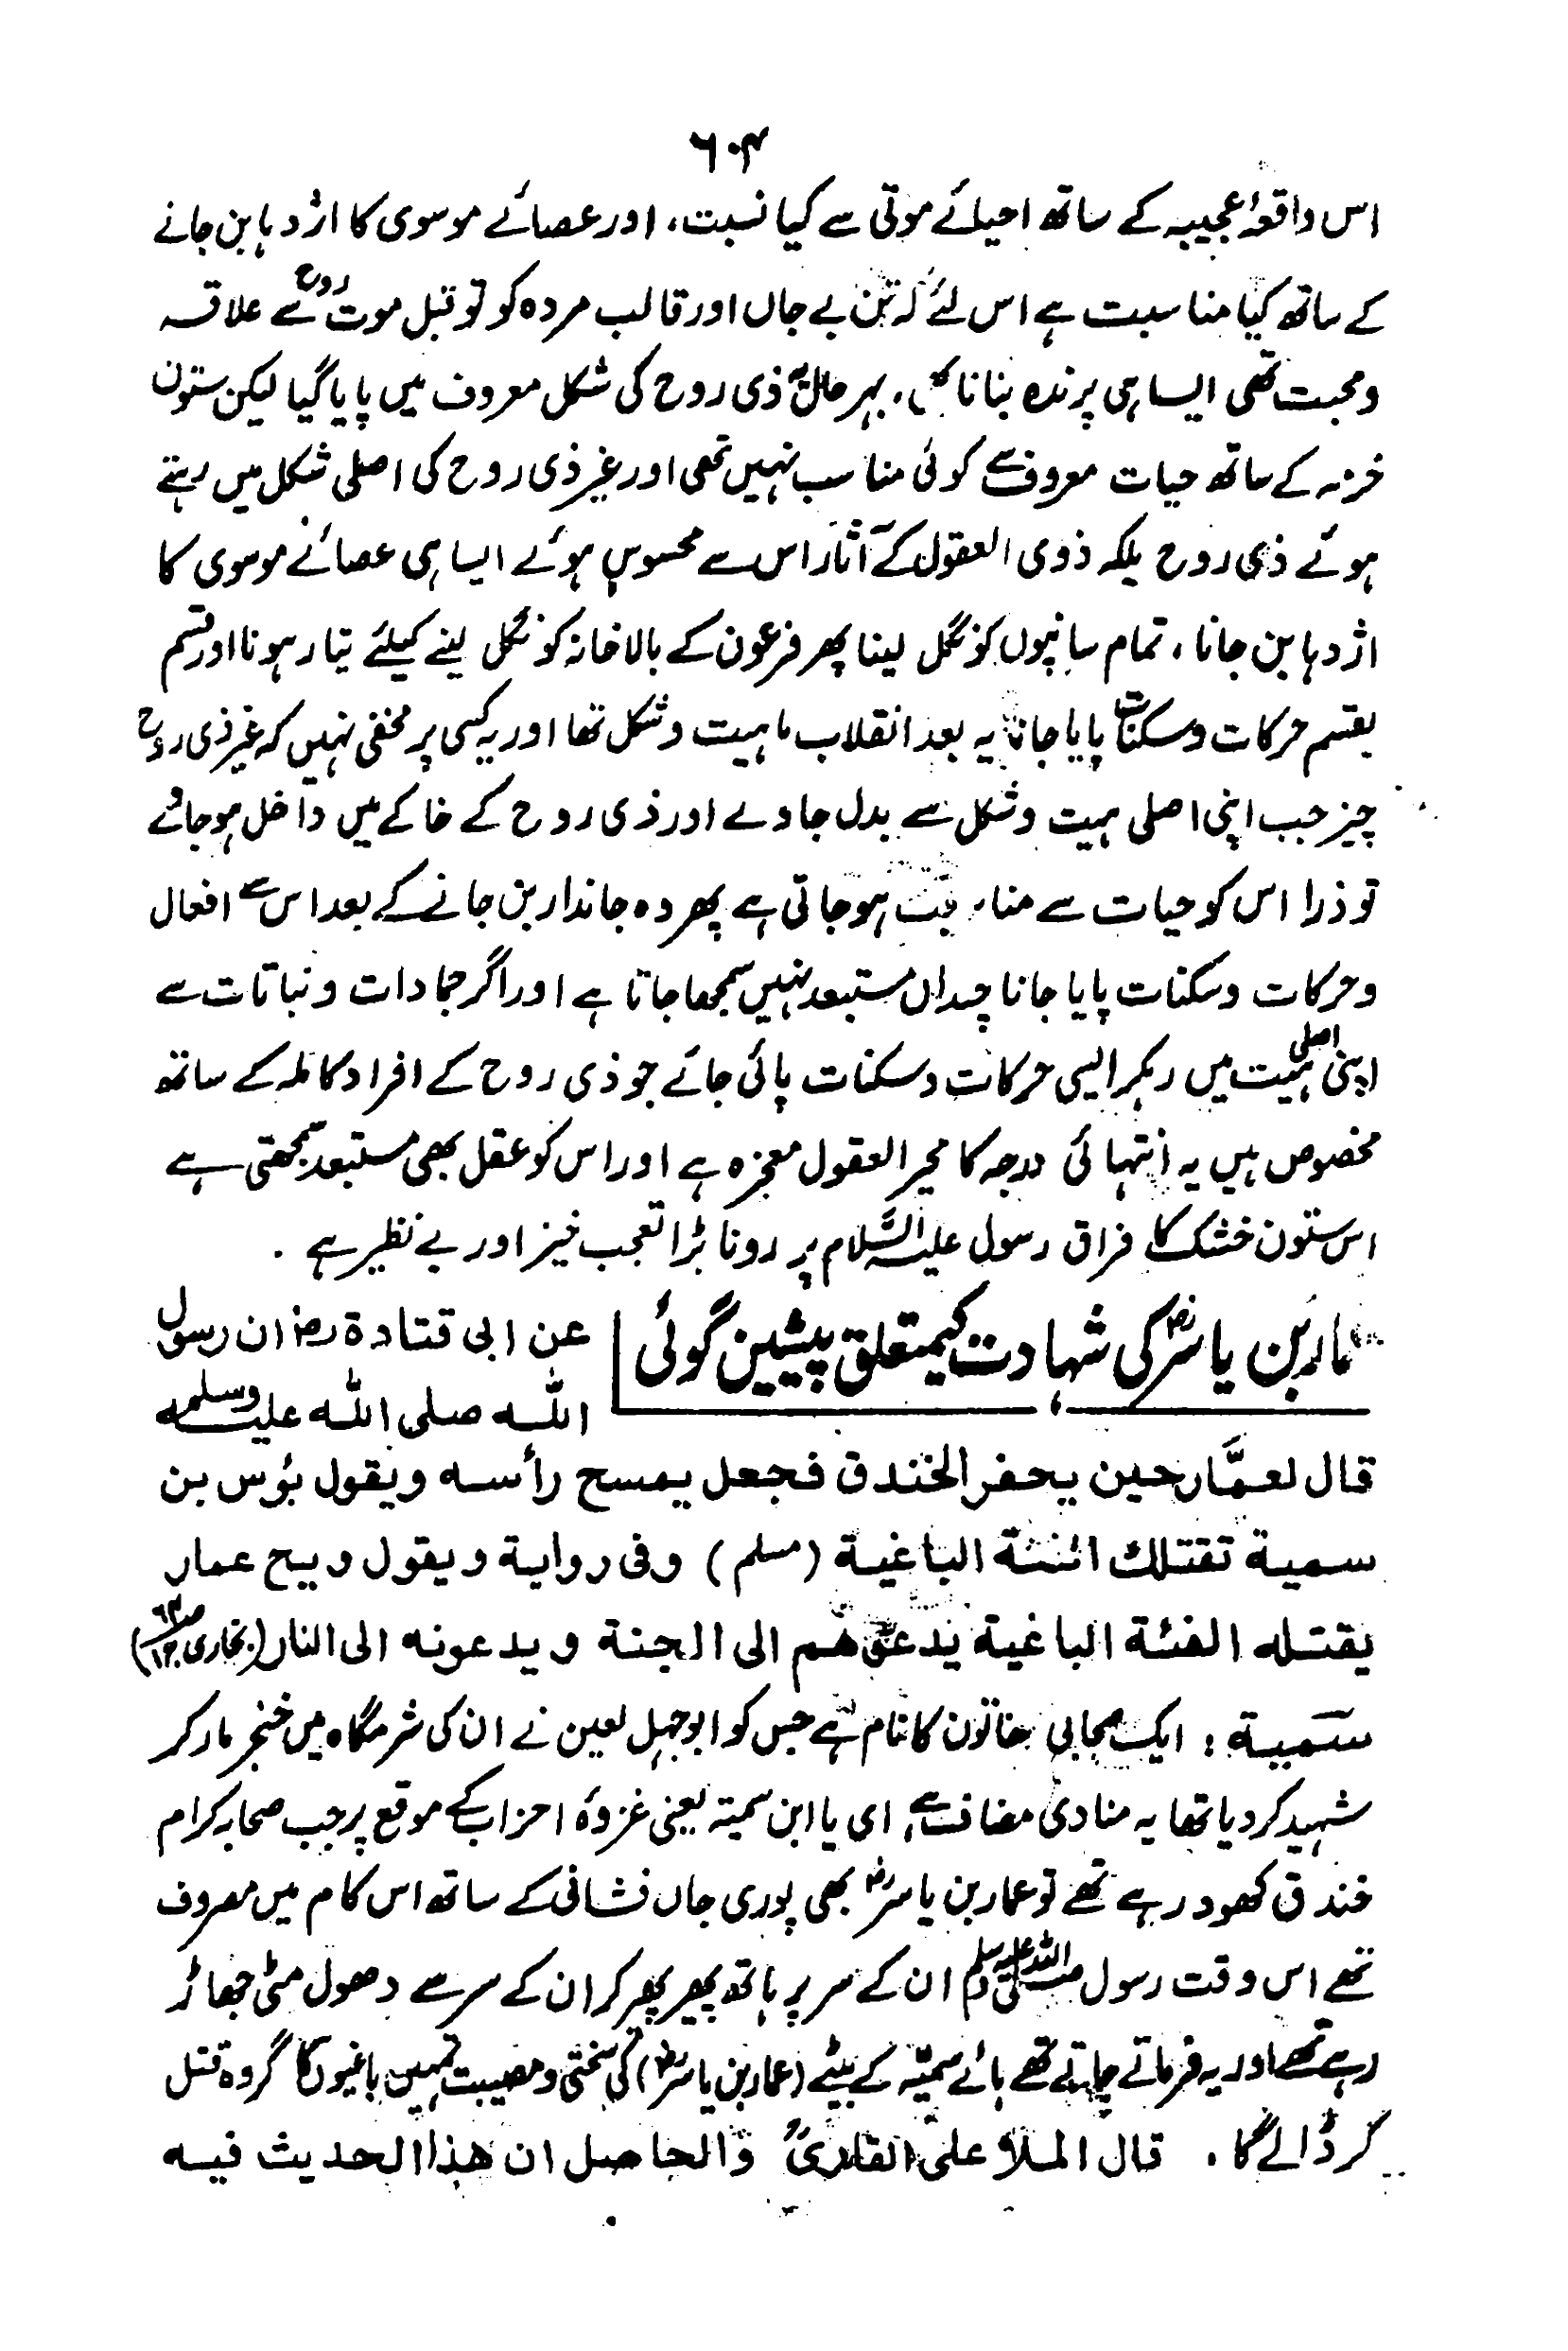 ۶۰۴
اس واقعۂ عجیبہ کے ساتھ احیائے موتی سے کیا نسبت، اور عصائے موسوی کا اژدہا بن جانے
کے ساتھ کیا مناسبت ہے اس لئے کہ تن بے جاں اور قالب مردہ کو تو قبل موت روح سے علاقہ
ومحبت تھی ایسا ہی پرندہ بنانا بہر حال ذی روح کی شکل معروف میں پایا گیا لیکن ستون
خرمہ کے ساتھ حیات معروف سے کوئی مناسب نہیں تھی اور غیر ذی روح کی اصلی شکل میں رہتے
ہوئے ذی روح بلکہ ذوی العقول کے آثار اس سے محسوس ہوئے ایسا ہی عصائے موسوی کا
اژدہا بن جانا، تمام سانپوں کو نگل لینا پھر فرعون کے بالاخانہ کو نگل لینے کیلئے تیار ہونا اور قسم
بقسم حرکات وسکنات پایا جانا یہ بعد انقلاب ماہیت وشکل تھا اور یہ کسی پر مخفی نہیں کہ غیر ذی روح
چیز جب اپنی اصلی ہیت وشکل سے بدل جاوے اور ذی روح کے خاکے میں داخل ہو جائے
تو ذرا اس کو حیات سے مناسبت ہو جاتی ہے پھر وہ جاندار بن جانے کے بعد اس سے افعال
وحرکات وسکنات پایا جانا چنداں مستبعد نہیں سمجھا جاتا ہے اور اگر جمادات ونباتات سے
اپنی اصلی ہیت میں رہکر ایسی حرکات وسکنات پائی جائے جو ذی روح کے افراد کاملہ کے ساتھ
مخصوص ہیں یہ انتہائی درجہ کا محیر العقول معجزہ ہے اور اس کو عقل بھی مستبعد سمجھتی ہے
اس ستون خشک کا فراق رسول علیہ السلام پر رونا بڑا تعجب خیز اور بے نظیر ہے .
عمار بن یاسرؓ کی شہادت کیمتعلق پیشین گوئی
عن ابی قتادة رض ان رسول
اللہ صلی اللہ علیہ وسلم
قال لعمّار حین یحفر الخندق فجعل یمسح رأسہ ویقول بؤس بن
سمیة تقتلك الفئة الباغیة (مسلم) وفی روایة ویقول ویح عمار
یقتله الفئة الباغیة یدعوهم الی الجنة ویدعونه الی النار (بخاری
سمیة : ایک صحابی خاتون کا نام ہے جس کو ابوجہل لعین نے ان کی شرمگاہ میں خنجر مار کر
شہید کر دیا تھا یہ منادی مضاف ہے، ای یا ابن سمیة یعنی غزوۂ احزاب کے موقع پر جب صحابہ کرام
خندق کھود رہے تھے تو عمار بن یاسرؓ بھی پوری جاں فشانی کے ساتھ اس کام میں مصروف
تھے اس وقت رسول صلی اللہ علیہ وسلم ان کے سر پر ہاتھ پھیر پھیر کر ان کے سر سے دھول مٹی جھاڑ
رہے تھے اور یہ فرماتے جاتے تھے ہائے سمیّہ کے بیٹے (عمار بن یاسرؓ) کی سختی ومصیبت تمہیں باغیوں کا گروہ قتل
کر ڈالے گا . قال الملا علی القاریؒ والحاصل ان هذا الحدیث فیه